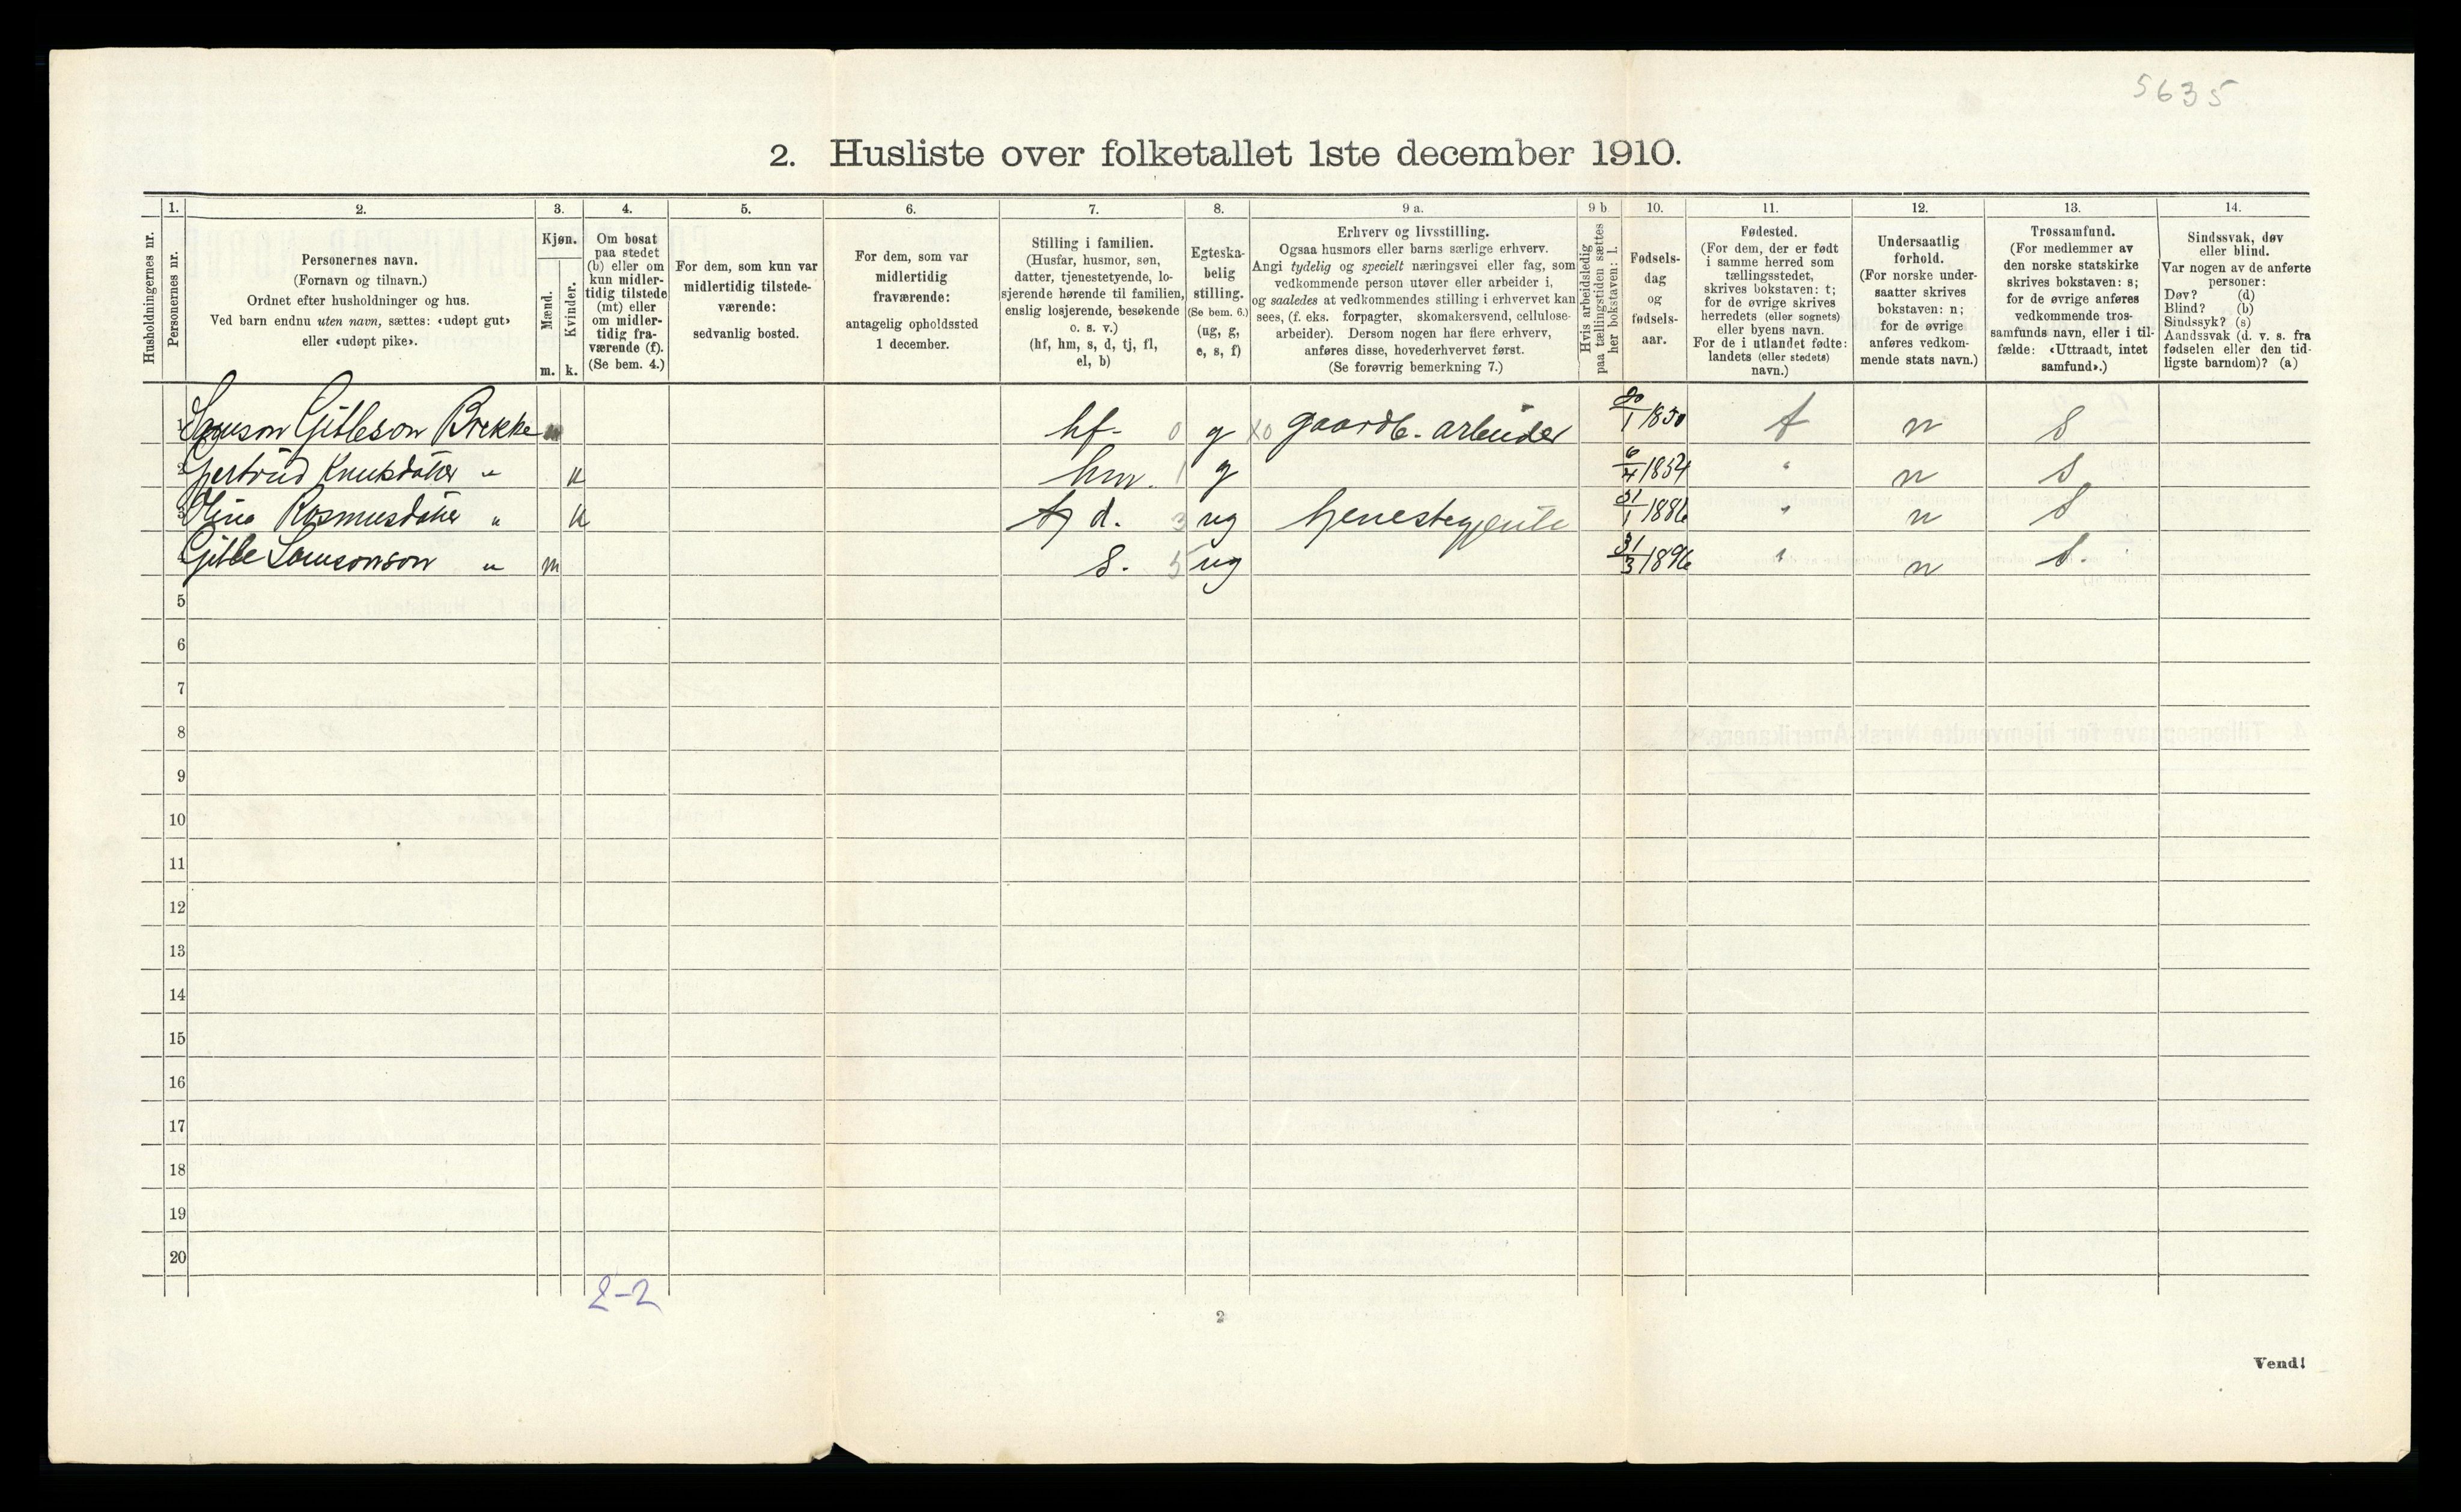 5635
2. Husliste over folketallet 1ste december 1910.
Husholdningernes nr.
1.
Personernes nr.
2.
Personernes navn.
(Fornavn og tilnavn.)
Ordnet efter husholdninger og hus.
Ved barn endnu uten navn, sættes: «udøpt gut»
eller «udøpt pike».
3.
Kjøn.
Mænd.
Kvinder.
m. k.
4.
Om bosat
paa stedet
(b) eller om
kun midler-
tidig tilstede
(mt) eller
om midler-
tidig fra-
værende (f).
(Se bem. 4.)
5.
For dem, som kun var
midlertidig tilstede-
værende:
sedvanlig bosted.
6.
For dem, som var
midlertidig
fraværende:
antagelig opholdssted
1 december.
7.
Stilling i familien.
(Husfar, husmor, søn,
datter, tjenestetyende, lo-
sjerende hørende til familien,
enslig losjerende, besøkende
o. s. v.)
(hf, hm, s, d, tj, fl,
el, b)
8.
Egteska-
belig
stilling.
(Se bem. 6.)
(ug, g,
e, s, f)
9 a.
Erhverv og livsstilling.
Ogsaa husmors eller barns særlige erhverv.
Angi tydelig og specielt næringsvei eller fag, som
vedkommende person utøver eller arbeider i,
og saaledes at vedkommendes stilling i erhvervet kan
sees, (f. eks. forpagter, skomakersvend, cellulose-
arbeider). Dersom nogen har flere erhverv,
anføres disse, hovederhvervet først.
(Se forøvrig bemerkning 7.)
9 b
Hvis arbeidsledig
paa tællingstiden sættes
her bokstaven: l.
10.
Fødsels-
dag
og
fødsels-
aar.
11.
Fødested.
(For dem, der er født
i samme herred som
tællingsstedet,
skrives bokstaven: t;
for de øvrige skrives
herredets (eller sognets)
eller byens navn.
For de i utlandet fødte:
landets (eller stedets)
navn.)
12.
Undersaatlig
forhold.
(For norske under-
saatter skrives
bokstaven: n;
for de øvrige
anføres vedkom-
mende stats navn.)
13.
Trossamfund.
(For medlemmer av
den norske statskirke
skrives bokstaven: s;
for de øvrige anføres
vedkommende tros-
samfunds navn, eller i til-
fælde: «Uttraadt, intet
samfund».)
14.
Sindssvak, døv
eller blind.
Var nogen av de anførte
personer:
Døv? (d)
Blind? (b)
Sindssyk? (s)
Aandssvak (d. v. s. fra
fødselen eller den tid-
ligste barndom)? (a)
1 Samson Gitleson Brekke m hf- 0 g x0 gaardb. arbeider 20/1 1850 t n s
2 Gjertrud Knutsdatter " k hm. 1 g 6/4 1854 " n s
3 Olina Rasmusdatter " k tj d. 3 ug tjenestegjente 31/1 1886 " n s
4 Gitle Samsonson " m s. 5 ug 31/3 1896 " n s.
5
6
7
8
9
10
11
12
13
14
15
16
17
18
19
20
2-2
2
Vend!